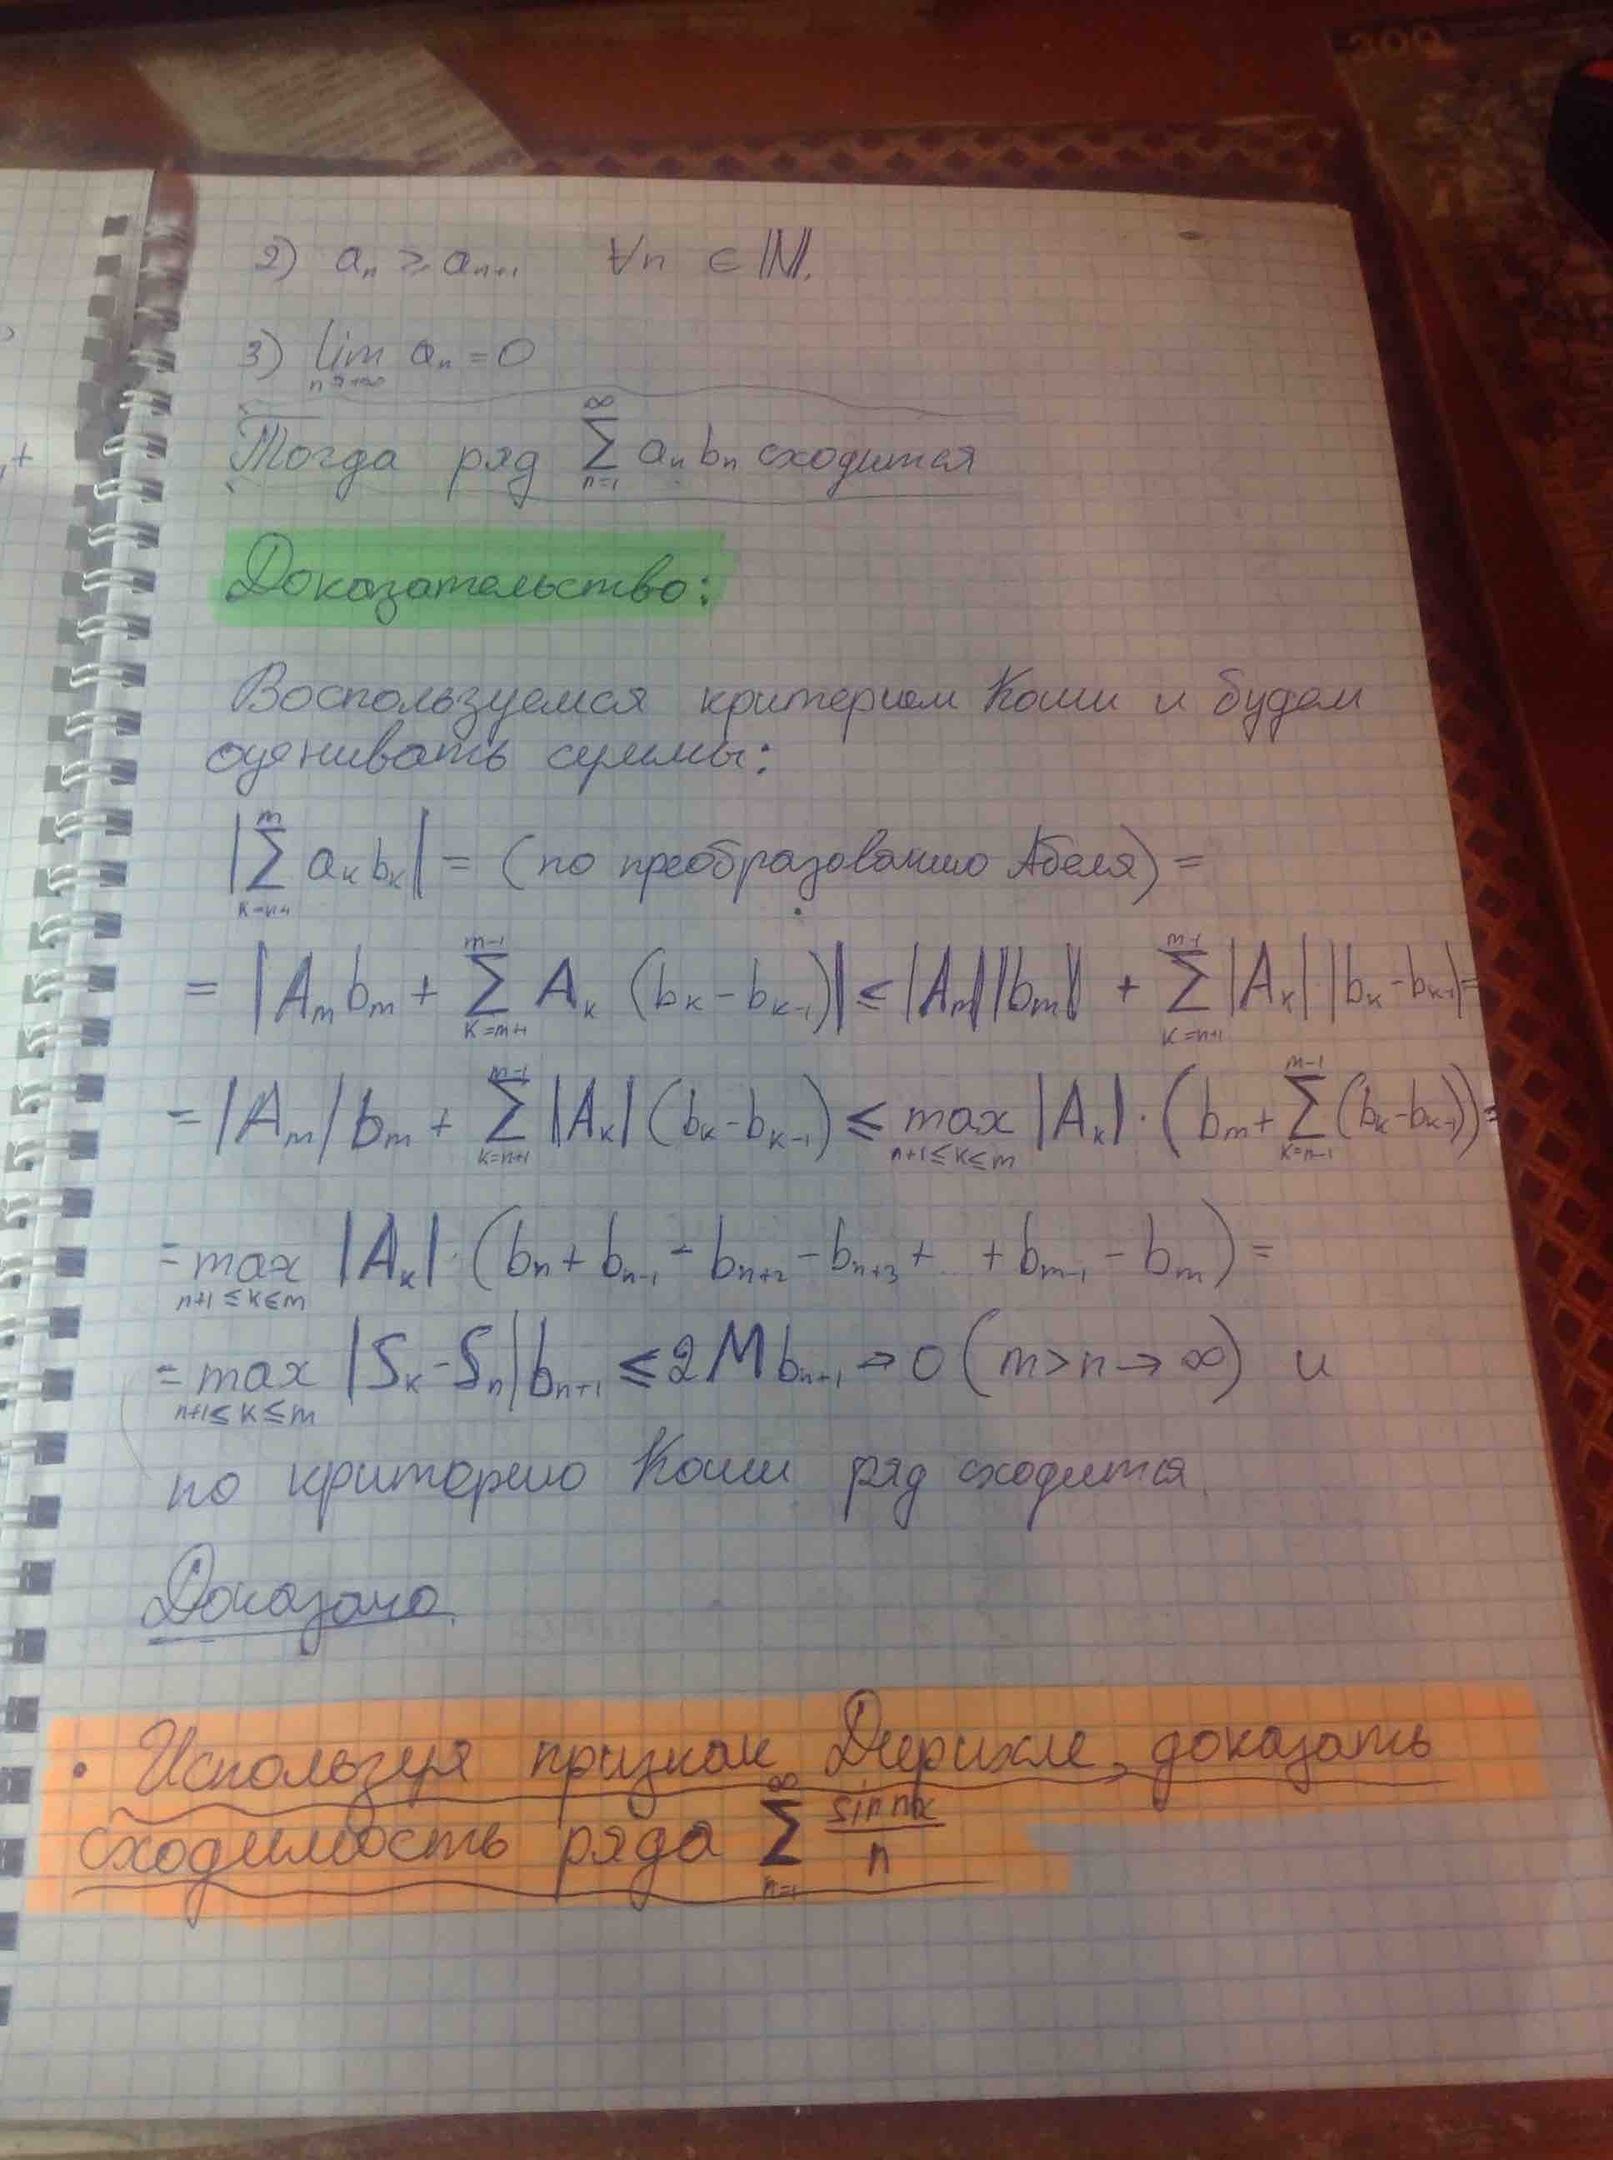 300
2) aₙ ≥ aₙ₊₁ ∀n ∈ ℕ.
3) lim_{n→+∞} aₙ = 0
Тогда ряд ∑_{n=1}^{∞} aₙ bₙ сходится
Доказательство:
Воспользуемся критерием Коши и будем
оценивать суммы:
|∑_{k=n+1}^{m} aₖ bₖ| = (по преобразованию Абеля) =
= |Aₘ bₘ + ∑_{k=m+1}^{m-1} Aₖ (bₖ - bₖ₋₁)| ≤ |Aₘ||bₘ| + ∑_{k=n+1}^{m-1} |Aₖ| |bₖ - bₖ₋₁| =
= |Aₘ| bₘ + ∑_{k=n+1}^{m-1} |Aₖ| (bₖ - bₖ₋₁) ≤ max_{n+1≤k≤m} |Aₖ| · (bₘ + ∑_{k=n-1}^{m-1} (bₖ - bₖ₋₁)) =
= max_{n+1≤k≤m} |Aₖ| · (bₙ + bₙ₋₁ - bₙ₊₂ - bₙ₊₃ + .. + bₘ₋₁ - bₘ) =
= max_{n+1≤k≤m} |Sₖ - Sₙ| bₙ₊₁ ≤ 2M bₙ₊₁ → 0 (m > n → ∞) и
по критерию Коши ряд сходится.
Доказано.
• Используя признак Дирихле, доказать
сходимость ряда ∑_{n=1}^{∞} sin nx / n